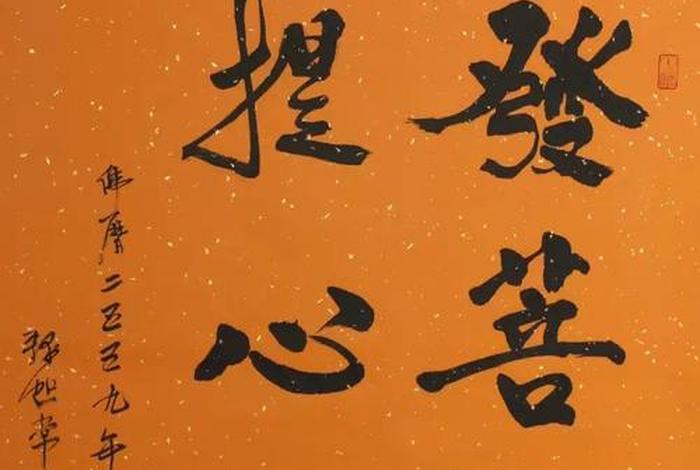 發菩
提心
佛曆二五五九年